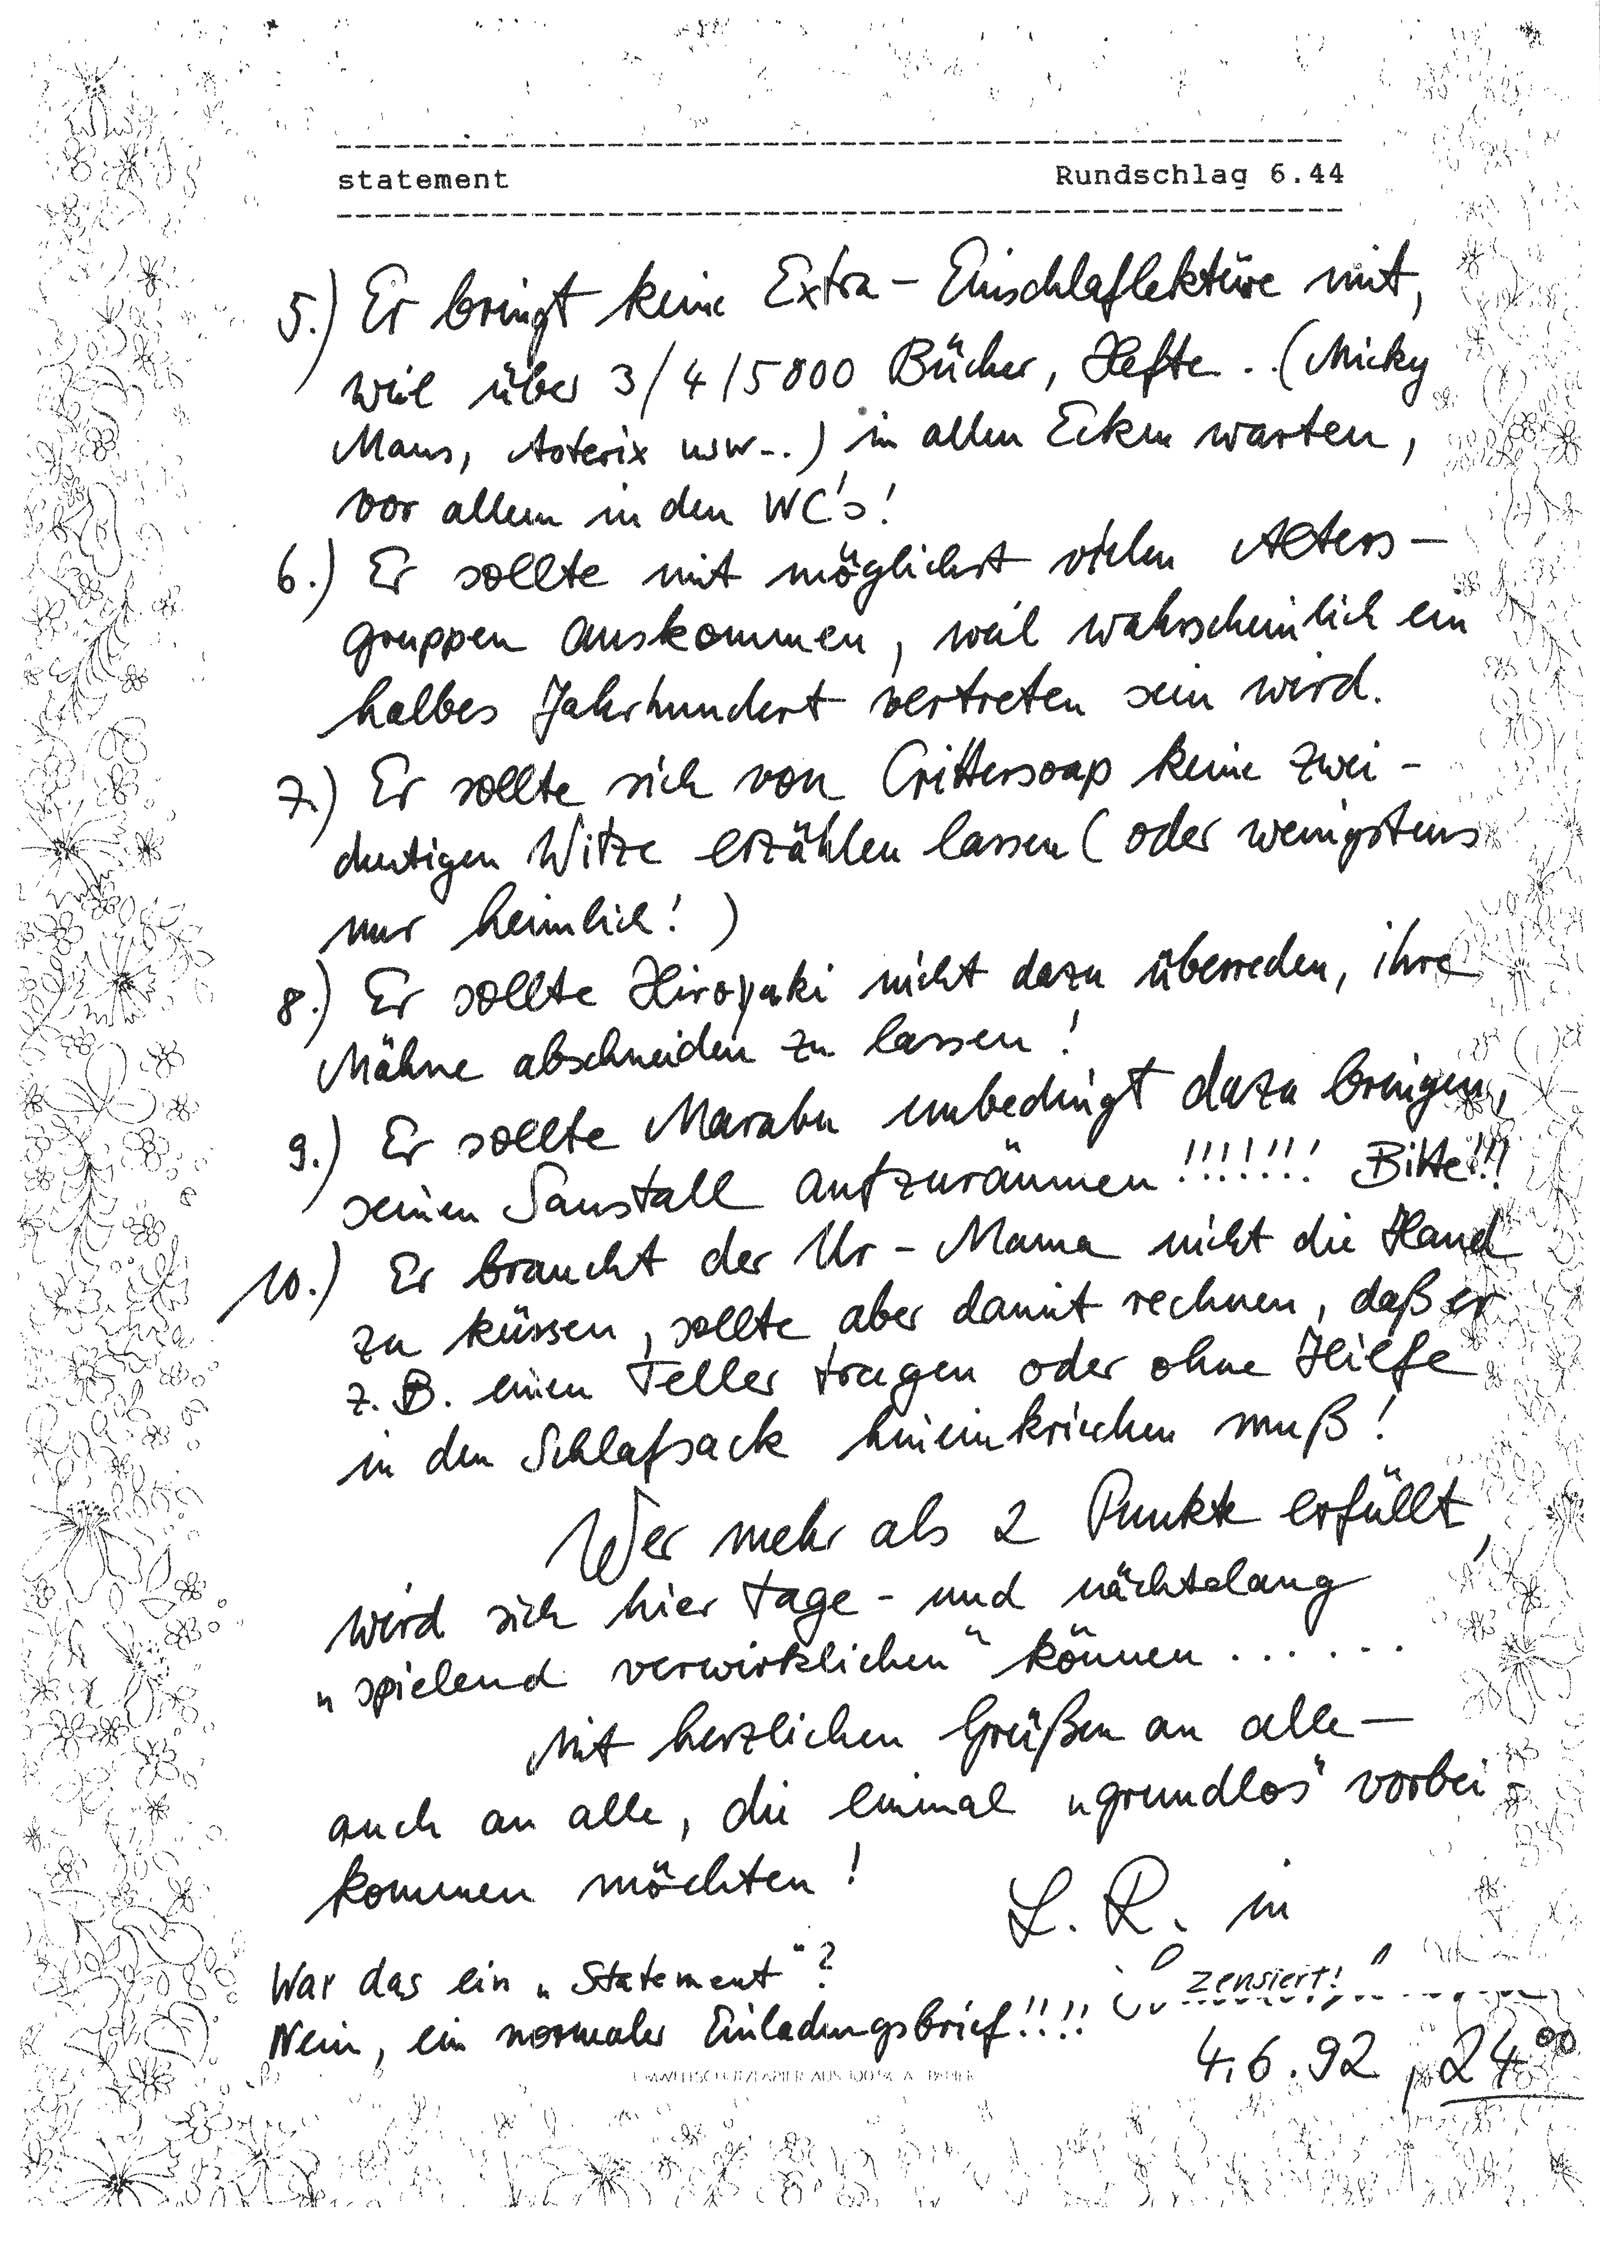 statement Rundschlag 6.44
5.) Er bringt keine Extra-Einschlaflektüre mit,
weil über 3/4/5000 Bücher, Hefte.. (Micky
Maus, Asterix usw...) in allen Ecken warten,
vor allem in den WC's!
6.) Er sollte mit möglichst vielen Alters-
gruppen auskommen, weil wahrscheinlich ein
halbes Jahrhundert vertreten sein wird.
7.) Er sollte sich von Crittersoap keine zwei-
deutigen Witze erzählen lassen (oder wenigstens
nur heimlich!)
8.) Er sollte Hiroyuki nicht dazu überreden, ihre
Mähne abschneiden zu lassen!
9.) Er sollte Marabu unbedingt dazu bringen,
seinen Saustall aufzuräumen!!!!!!! Bitte!!!
10.) Er braucht der Ur-Mama nicht die Hand
zu küssen, sollte aber damit rechnen, daß er
z.B. einen Teller tragen oder ohne Hilfe
in den Schlafsack hineinkriechen muß!
Wer mehr als 2 Punkte erfüllt,
wird sich hier tage- und nächtelang
„spielend verwirklichen" können......
Mit herzlichen Grüßen an alle –
auch an alle, die einmal „grundlos" vorbei-
kommen möchten!
L. R. in
War das ein „Statement"?
zensiert!
Nein, ein normaler Einladungsbrief!!!!
4.6.92, 24⁰⁰
UMWELTSCHUTZPAPIER AUS 100% ALTPAPIER